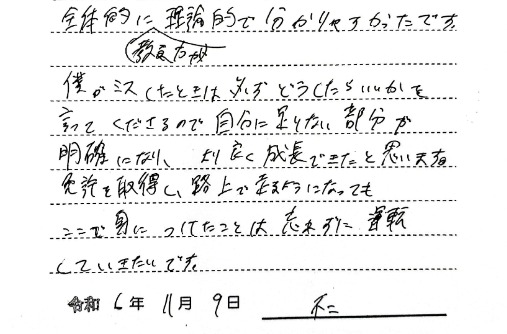 全体的に理論的で分かりやすかったです
教え方が
僕がミスしたときは必ずどうしたらいいかを
言ってくださるので自分に足りない部分が
明確になり、より良く成長できたと思います。
免許を取得し、路上で走るようになっても
ここで身につけたことは忘れずに運転
していきたいです。
令和 6年 11月 9日